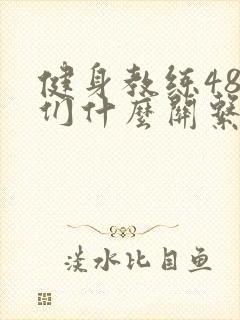 健身教练48
们什麼關繫
淡水比目鱼